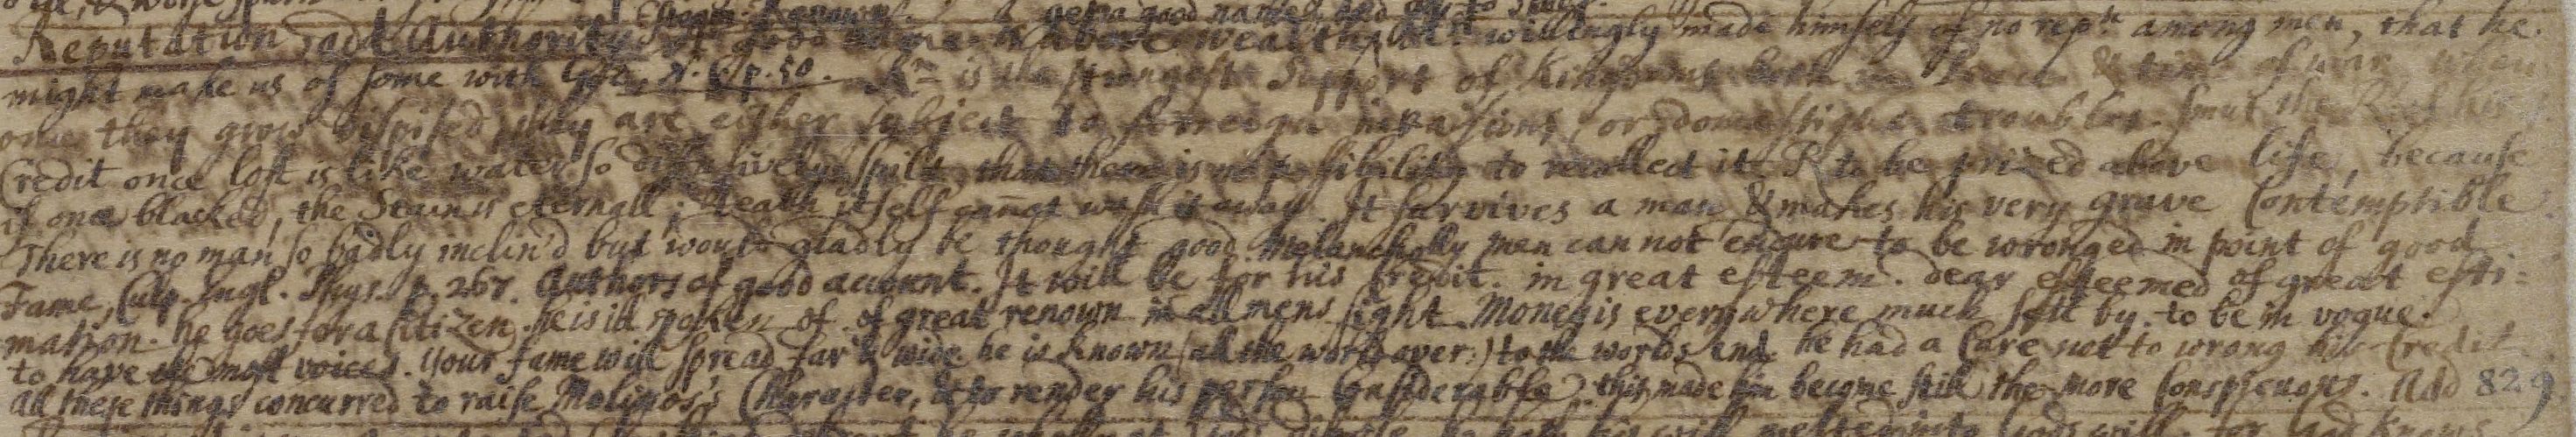 Reputation add Authority good name is above wealth willingly made himself of no rep:tn among men, that he
might make us of some with God. p. 50. Rn is the strongest Support of Kingdoms both in & time of war when
once they grow dispised, they are either subject to forreign invasions, or domestique troubles.
Credit once lost is like water so diffusively spilt, that there is not possibility to recollect it. R to be prized above life, because
if once blacked, the Stain is eternall; death itself cannot wash it away. It survives a man & makes his very grave Contemptible.
There is no man so badly inclin'd but would gladly be thought good. Melancholly men can not endure to be wronged in point of good
Fame, Culp. Engl. Phys. p. 267. Authors of good account. It will be for his credit. in great esteem. dear esteemed of great esti=
mation. he goes for a Citizen. he is ill spoken of. of great renown in all mens sight. Money is every where much sett by. to be in vogue.
to have the most voices. your fame will spread far & wide he is known (all the world over:) to the worlds end. he had a Care not to wrong his Credit
All these things concurred to raise Molinos's Character, & to render his person Considerable. this made him become still the more Conspicuous. Add 829